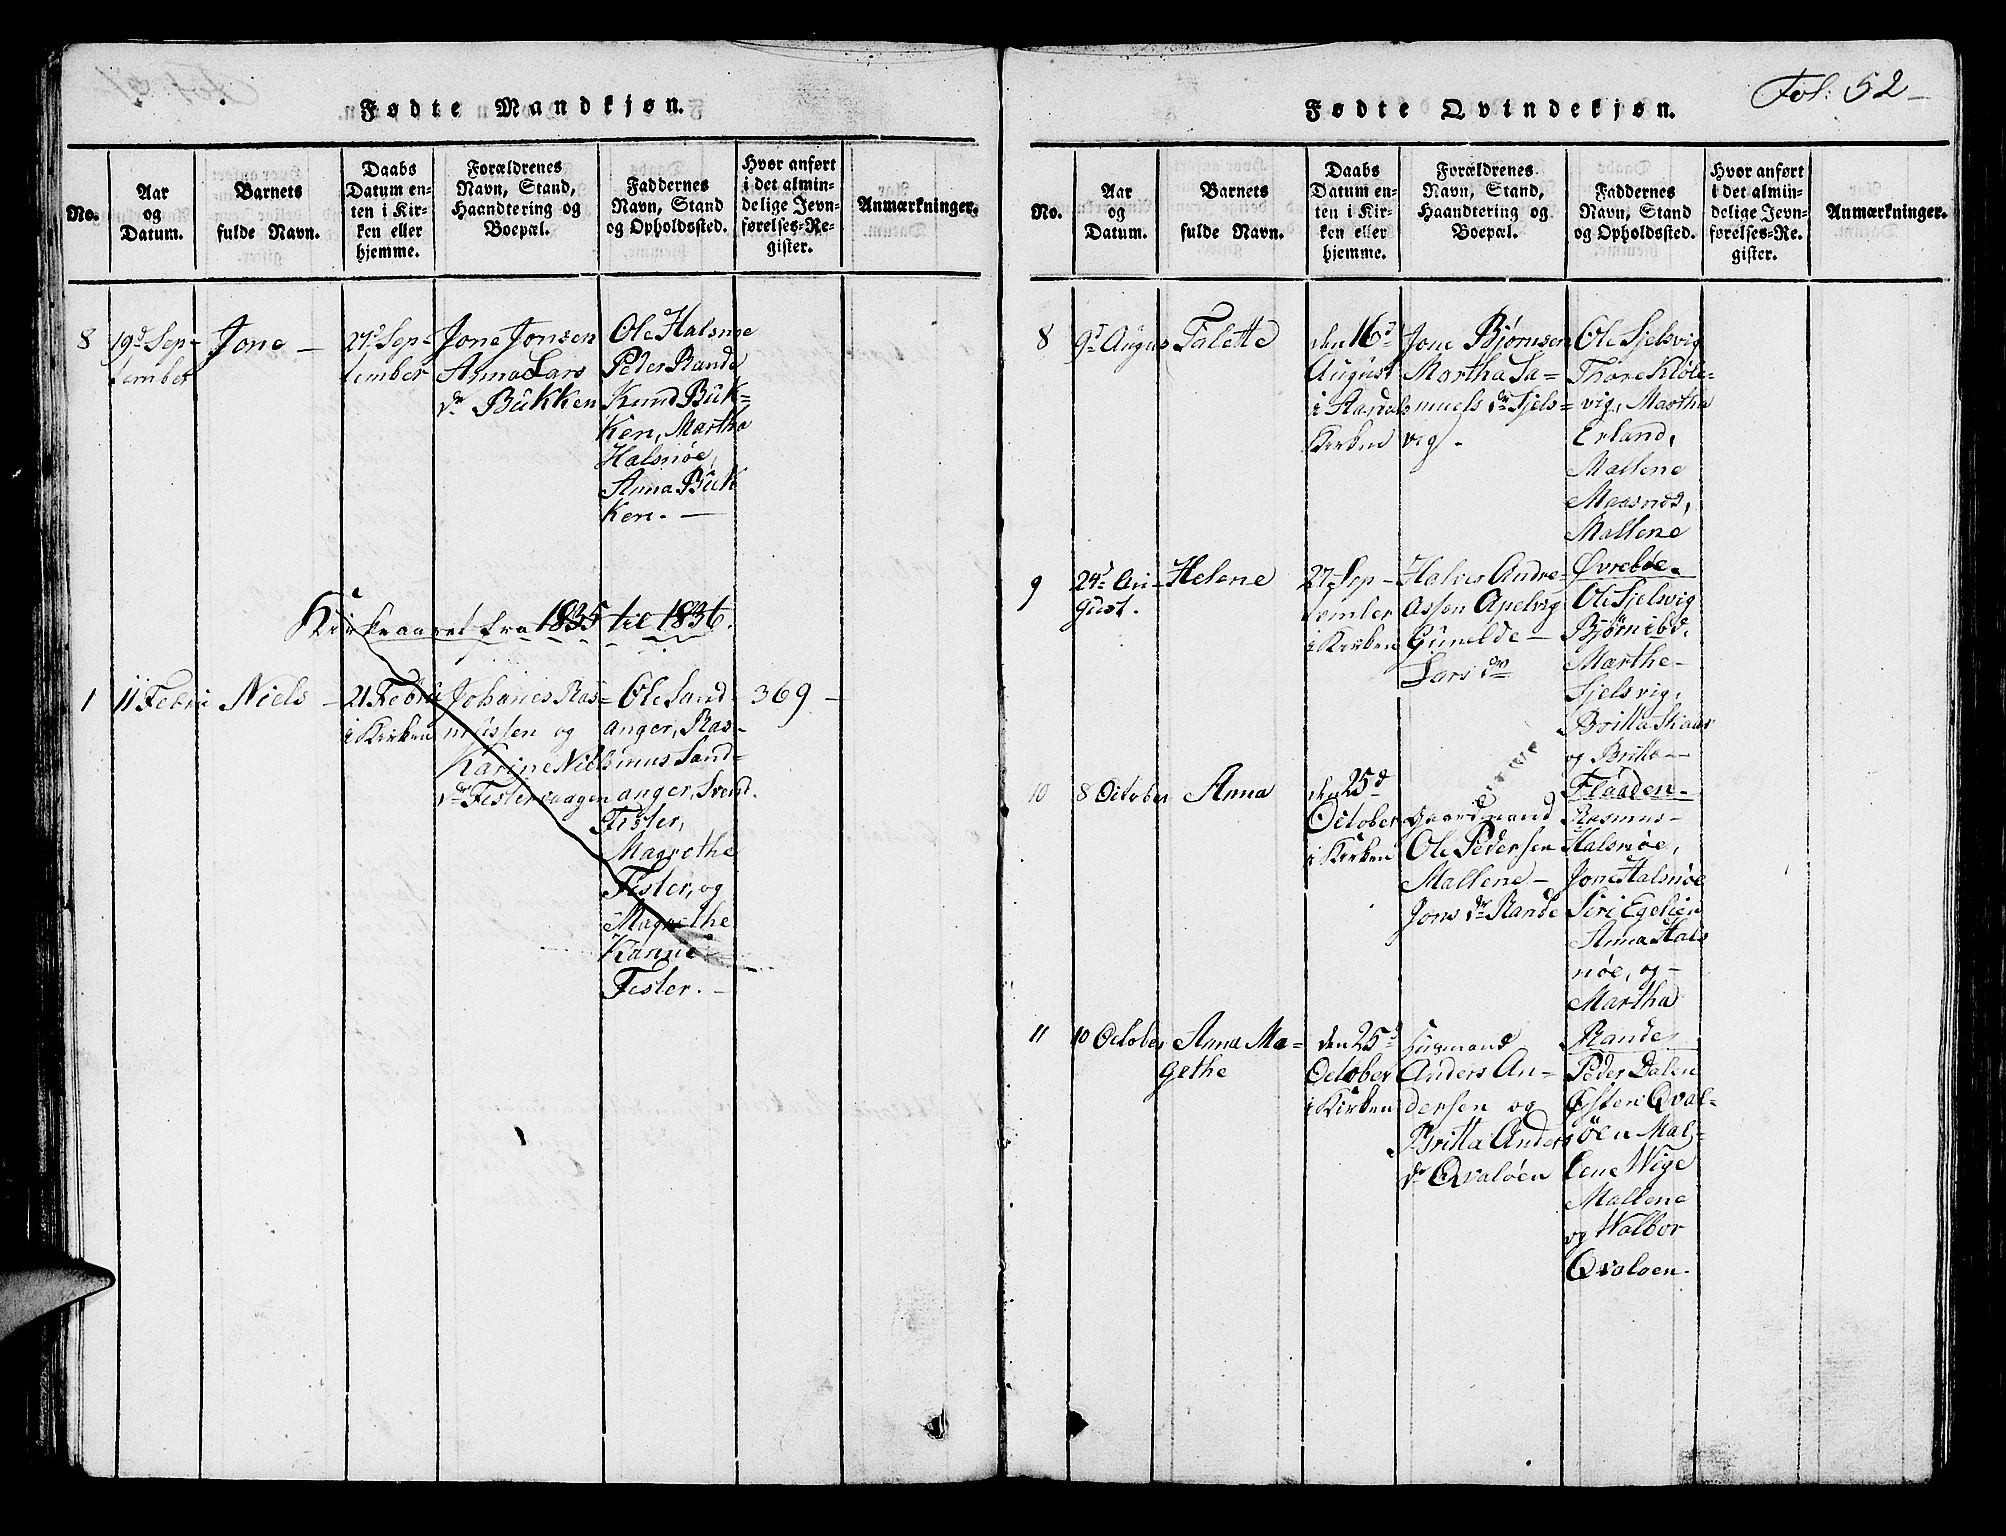 Fol: 52
Fødte Mandkjøn.
No.
Aar
og
Datum.
Barnets
fulde Navn.
Daabs
Datum en-
ten i Kir-
ken eller
hjemme.
Forældrenes
Navn, Stand,
Haandtering og
Boepæl.
Faddernes
Navn, Stand
og Opholdssted.
Hvor anført
i det almin-
delige Jevn-
førelses-Re-
gister.
Anmærkninger.
8
19d Sep-
tember
Jone
27d Sep-
tember
Jone Jonsen
Anna Lars
dr Bükken
Ole Halsnøe
Peder Rande
Knud Bük-
ken, Martha
Halsnøe,
Anna Bük
ken.
Kirkeaaret fra 1835 til 1836.
1
11 Febru
Niels
21 Febru
i Kirken
Johanes Ras-
mussen og
Karine Niels
dr Fistervaagen
Ole Sand-
anger, Ras-
mus Sand-
anger, Svend
Fister,
Magrethe
Fister, og
Magrethe
Karine
Fister.
369
Fødte Qvindekjøn.
No.
Aar
og
Datum.
Barnets
fulde Navn.
Daabs
Datum en-
ten i Kir-
ken eller
hjemme.
Forældrenes
Navn, Stand,
Haandtering og
Boepæl.
Faddernes
Navn, Stand
og Opholdssted.
Hvor anført
i det almin-
delige Jevn-
førelses-Re-
gister.
Anmærkninger.
8
9d Augus
Talette
den 16d
August
Kirken
Jone Bjørnsen
Martha Sa-
muels dr Sjels-
vig.
Ole Sjelsvig
Thore Kløle-
vig, Martha
Erland,
Mallene
Maasnød,
Mallene
Øvrebøe.
9
24d Au-
gust.
Helene
27 Sep-
tember
i Kirken
Halvor Andre-
assen Apelvig
Gunelde
Lars dr
Ole Sjelsvig
Bjørn ibd.
Marthe
Sjelsvig,
Britta Skaar
og Britta
Flaaden
10
8 October
Anna
den 25d
October
i Kirken
Gaardmand
Ole Pedersen
Mallene
Jons dr Rande
Rasmus
Halsnøe,
Jone Halsnøe
Siri Egelien
Anna Hals
nøe, og
Martha
Rande
11
10 October
Anna Ma-
gethe
den 25d
October
i Kirken
Husmand
Anders An-
dersen og
Britta Anders
dr Qvaløen
Peder Dalen
Østen Qval-
øen Mal-
lene Wige
Mallene
og Walbor
Qvaløen.